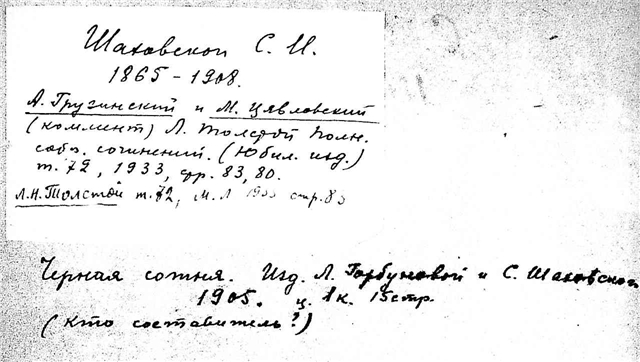 Шаховской С. И.
1865-1908.
А. Грузинский и М. Цявловский
(коммент) Л. Толстой Полн.
собр. сочинений. (Юбил. изд.)
т. 72, 1933, стр. 83, 80.
Л.Н. Толстой т. 72, М. Л 1933 стр. 83
Черная сотня. Изд. Л. Горбуновой и С. Шаховской
1905. ц. 1 к. 15 стр.
(Кто составитель?)